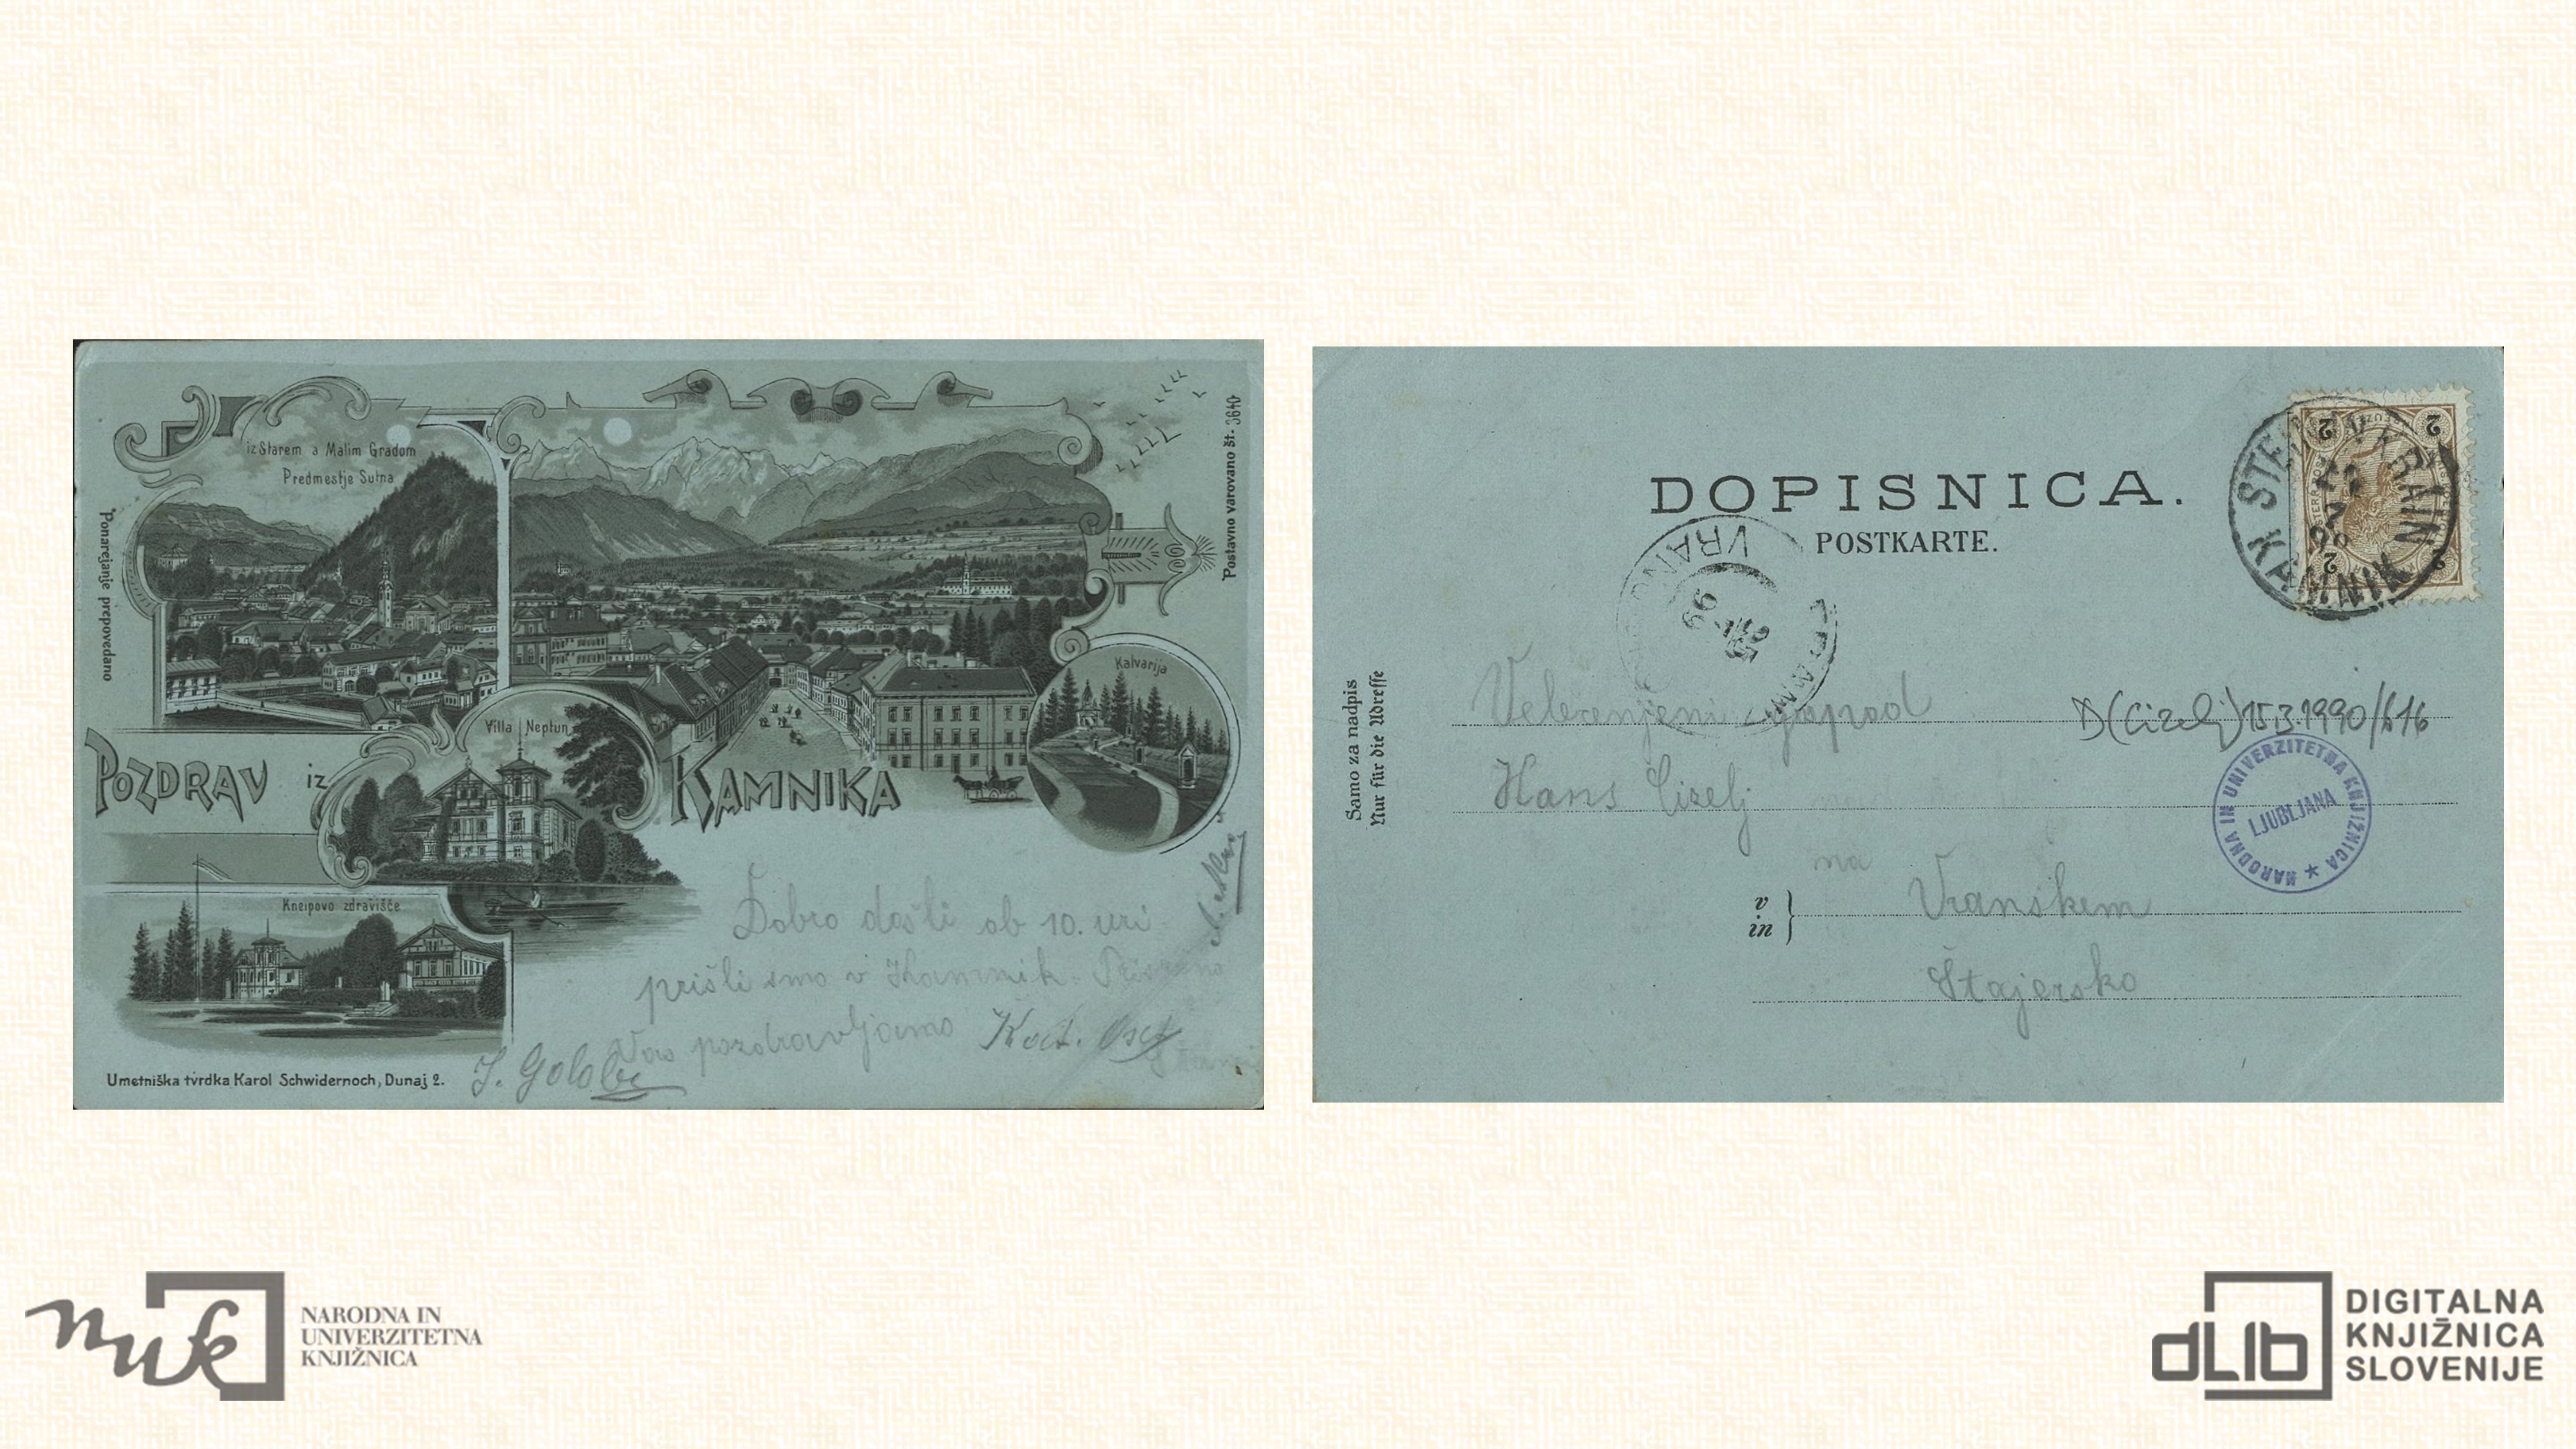 iz Starem a Malim Gradom
Predmestje Sutna
Ponarejanje prepovedano
Postavno varovano št. 3640
Kalvarija
Villa Neptun
POZDRAV iz KAMNIKA
Kneipovo zdravišče
Dobro došli ob 10. uri
prišli smo v Kamnik.
Vas pozdravljamo
J. Golob
Umetniška tvrdka Karol Schwidernoch, Dunaj 2.
DOPISNICA.
POSTKARTE.
STEIN KRAIN
KAMNIK
2
2
2
VRANSKO
Samo za nadpis
Nur für die Adresse
Velecenjeni gospod
D(Cizelj) 15.3.1990/616
Hans Cizelj
NARODNA IN UNIVERZITETNA KNJIŽNICA
LJUBLJANA
na
v
in
Vranskem
Štajersko
nuk
NARODNA IN
UNIVERZITETNA
KNJIŽNICA
dLib
DIGITALNA
KNJIŽNICA
SLOVENIJE